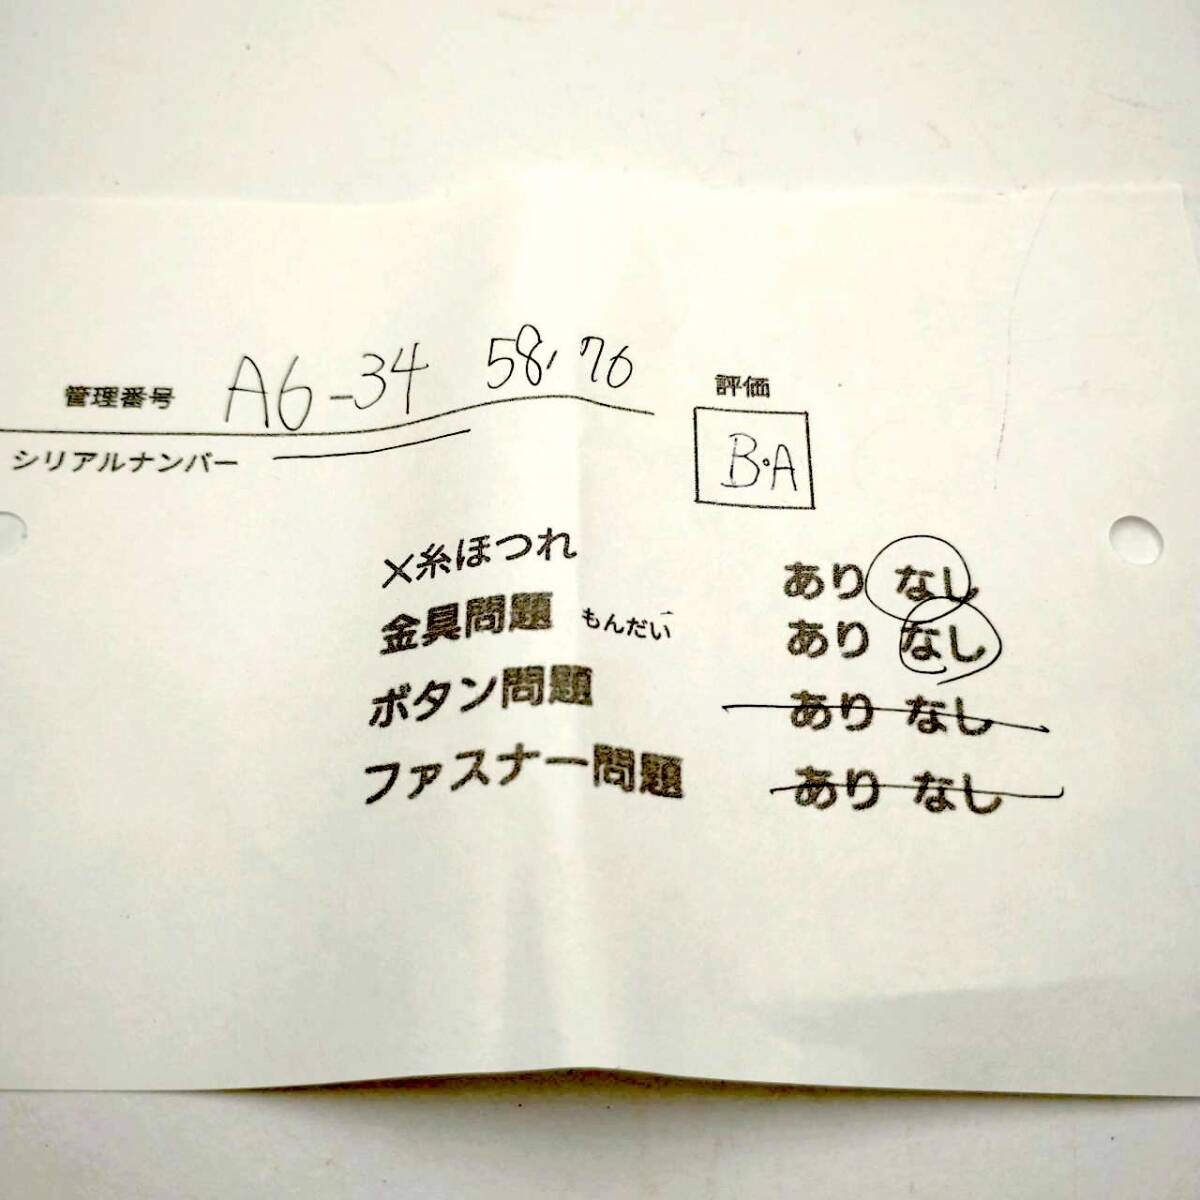 管理番号 A6-34 58,76
評価
シリアルナンバー
B・A
×糸ほつれ あり なし
金具問題 もんだい あり なし
ボタン問題 あり なし
ファスナー問題 あり なし